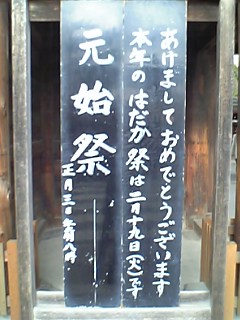 あけましておめでとうございます
本年のはだか祭は二月十九日(火)です
元始祭
正月三日